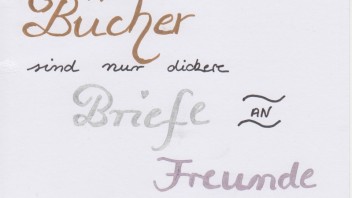 Bücher
sind nur dickere
Briefe AN
Freunde